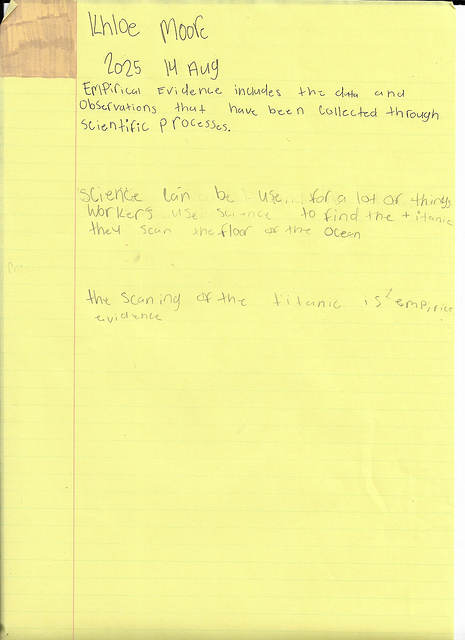 Khloe Moore
2025 14 Aug
Empirical Evidence includes the data and
Observations that have been collected through
scientific processes.
science can be use for a lot of things
workers use science to find the titanic
they scan the floor of the ocean
the scaning of the titanic is empirice
evidence